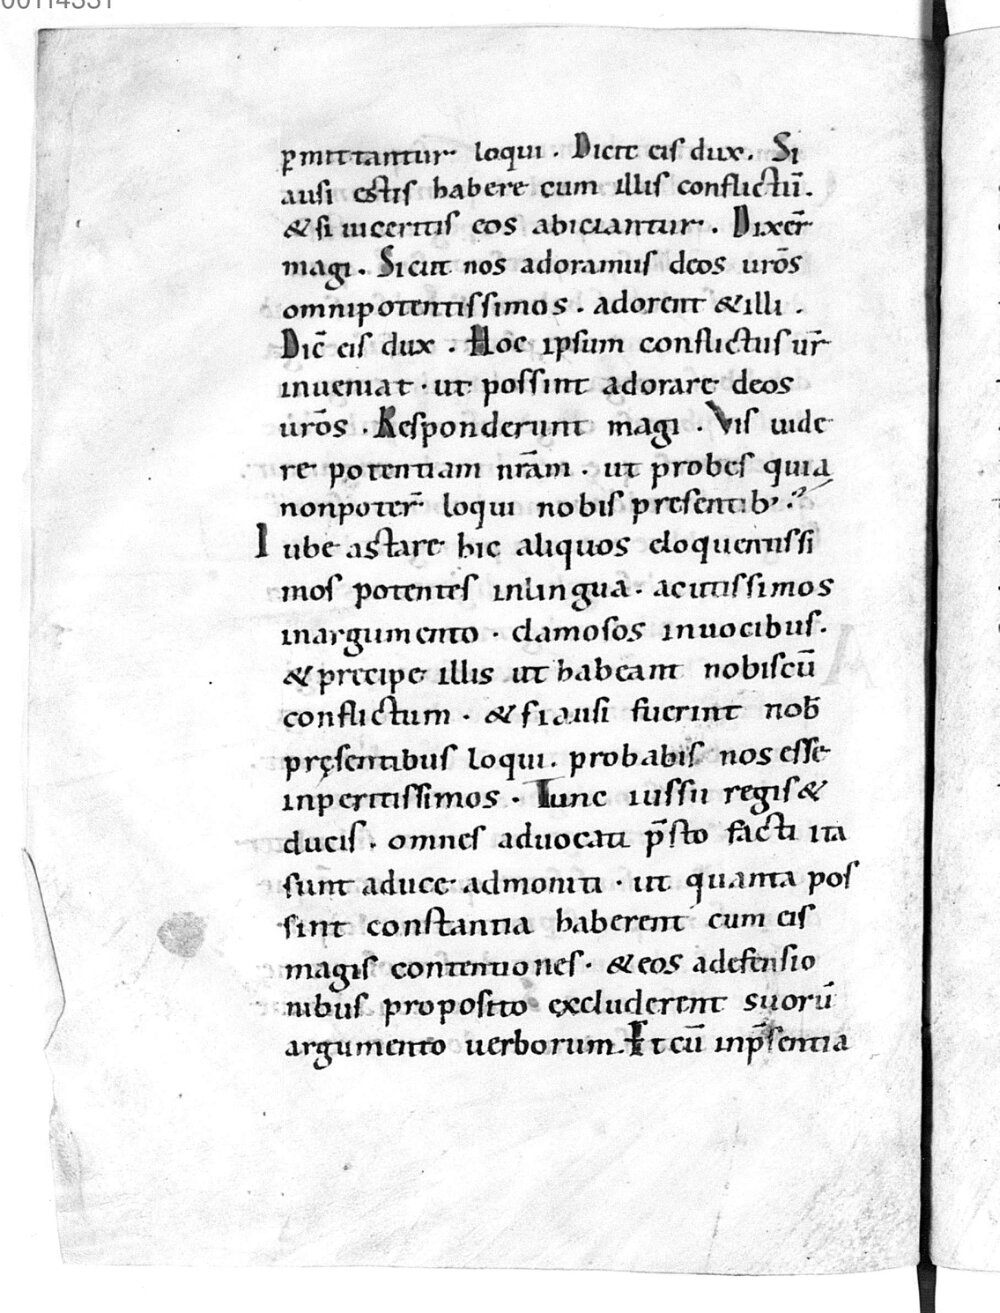 00114331
p̲mittantur loqui . Dicit eis dux . Si
ausi estis habere cum illis conflictū .
& si uiceritis eos abiciantur . Dixer̄
magi . Sicut nos adoramus deos ur̄os
omnipotentissimos . adorent & illi .
Dic̄ eis dux . Hoc ipsum conflictus ur̄
inueniat . ut possint adorare deos
ur̄os . Responderunt magi . Vis uide
re potentiam nr̄am . ut probes quia
nonpoter̄ loqui nobis presentib' .
Iube astare hic aliquos eloquentissi
mos potentes inlingua . acutissimos
inargumento . clamosos inuocibus .
& precipe illis ut habeant nobiscū
conflictum . & si ausi fuerint nob̄
pręsentibus loqui . probabis nos esse
inperitissimos . Tunc iussu regis &
ducis . omnes aduocati p̄sto facti ita
sunt aduce admoniti . ut quanta pos
sint constantia haberent cum eis
magis contentiones . & eos adefensio
nibus proposito excluderent suorū
argumento uerborum . Et cū inp̄sentia